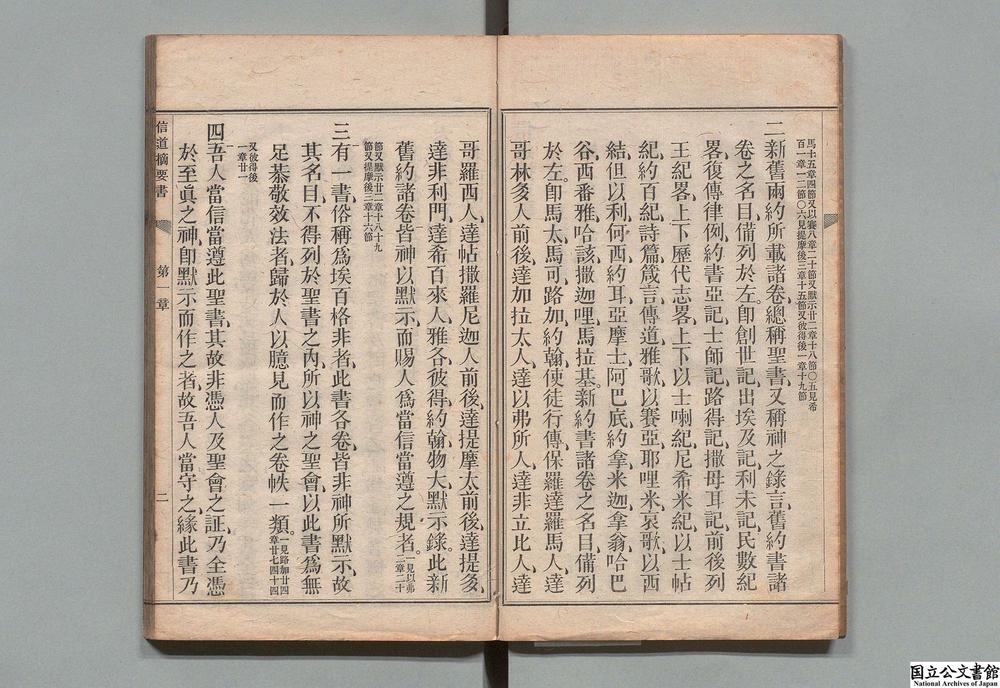 馬十五章四節又以賽八章二十節又默示廿二章十八節〇五見希
百一章一二節〇六見提摩後三章十五節又彼得後一章十九節
二新舊兩約所載諸卷總稱聖書又稱神之錄言舊約書諸
卷之名目備列於左卽創世記出埃及記利未記民數紀
畧復傳律例約書亞記士師記路得記撒母耳記前後列
王紀畧上下歷代志畧上下以士喇紀尼希米紀以士帖
紀約百紀詩篇箴言傳道雅歌以賽亞耶哩米哀歌以西
結但以利何西約耳亞摩士阿巴底約拿米迦拿翁哈巴
谷西番雅哈該撒迦哩馬拉基新約書諸卷之名目備列
於左卽馬太馬可路加約翰使徒行傳保羅達羅馬人達
哥林多人前後達加拉太人達以弗所人達非立比人達
哥羅西人達帖撒羅尼迦人前後達提摩太前後達提多
達非利門達希百來人雅各彼得約翰猶大默示錄此新
舊約諸卷皆神以默示而賜人爲當信當遵之規者一見以弗二章二十
節又默示廿二章十八十九
節又提摩後三章十六節
三有一書俗稱爲埃百格非者此書各卷皆非神所默示故
其名目不得列於聖書之內所以神之聖會以此書爲無
足恭敬效法者歸於人以臆見而作之卷帙一類一見路加廿四章廿七四十四
又彼得後
一章廿一
四吾人當信當遵此聖書其故非憑人及聖會之証乃全憑
於至眞之神卽默示而作之者故吾人當守之緣此書乃
信道摘要書
第一章
二
国立公文書館
National Archives of Japan